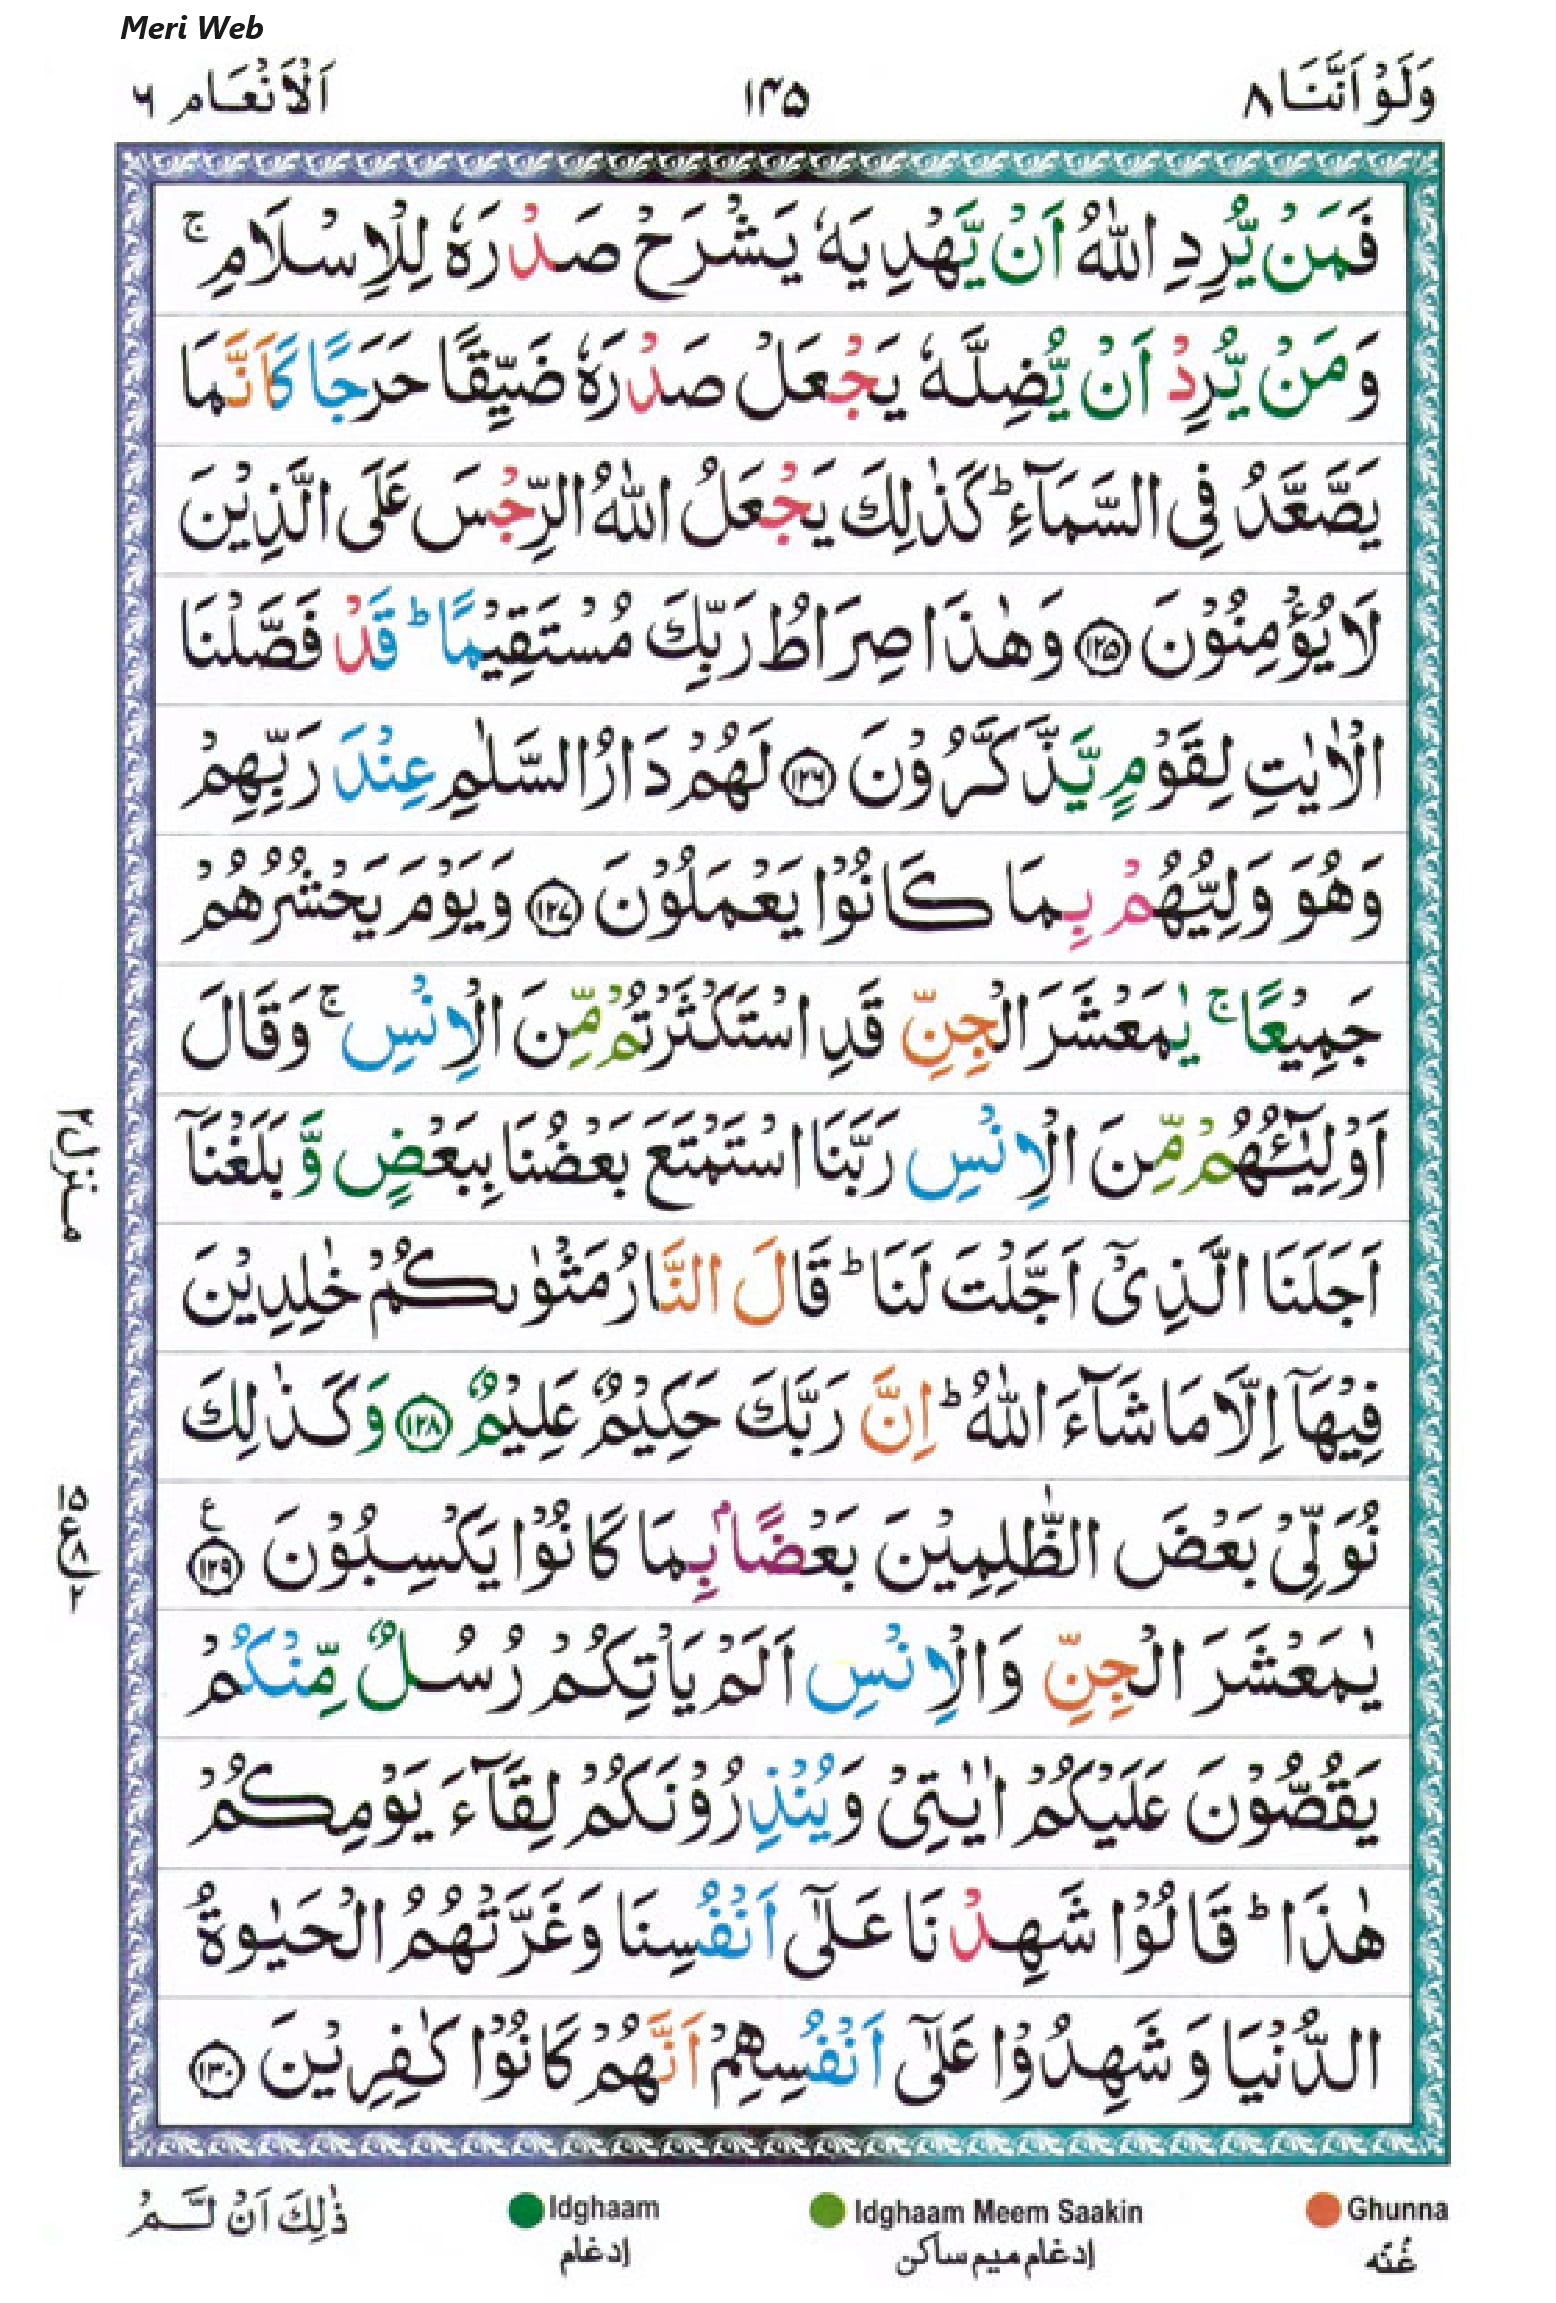 Meri Web
وَلَوْ اَنَّنَا ٨
١٤٥
اَلْاَنْعَام ٦
فَمَنْ يُّرِدِ اللّٰهُ اَنْ يَّهْدِيَهٗ يَشْرَحْ صَدْرَهٗ لِلْاِسْلَامِ ۚ
وَمَنْ يُّرِدْ اَنْ يُّضِلَّهٗ يَجْعَلْ صَدْرَهٗ ضَيِّقًا حَرَجًا كَاَنَّمَا
يَصَّعَّدُ فِى السَّمَآءِ ؕ كَذٰلِكَ يَجْعَلُ اللّٰهُ الرِّجْسَ عَلَى الَّذِيْنَ
لَا يُؤْمِنُوْنَ ١٢٥ وَهٰذَا صِرَاطُ رَبِّكَ مُسْتَقِيْمًا ؕ قَدْ فَصَّلْنَا
الْاٰيٰتِ لِقَوْمٍ يَّذَّكَّرُوْنَ ١٢٦ لَهُمْ دَارُ السَّلٰمِ عِنْدَ رَبِّهِمْ
وَهُوَ وَلِيُّهُمْ بِمَا كَانُوْا يَعْمَلُوْنَ ١٢٧ وَيَوْمَ يَحْشُرُهُمْ
جَمِيْعًا ۚ يٰمَعْشَرَ الْجِنِّ قَدِ اسْتَكْثَرْتُمْ مِّنَ الْاِنْسِ ۚ وَقَالَ
اَوْلِيٰٓئُهُمْ مِّنَ الْاِنْسِ رَبَّنَا اسْتَمْتَعَ بَعْضُنَا بِبَعْضٍ وَّبَلَغْنَآ
اَجَلَنَا الَّذِىْٓ اَجَّلْتَ لَنَا ؕ قَالَ النَّارُ مَثْوٰىكُمْ خٰلِدِيْنَ
فِيْهَآ اِلَّا مَا شَآءَ اللّٰهُ ؕ اِنَّ رَبَّكَ حَكِيْمٌ عَلِيْمٌ ١٢٨ وَكَذٰلِكَ
نُوَلِّىْ بَعْضَ الظّٰلِمِيْنَ بَعْضًاۢ بِمَا كَانُوْا يَكْسِبُوْنَ ١٢٩ ع
يٰمَعْشَرَ الْجِنِّ وَالْاِنْسِ اَلَمْ يَاْتِكُمْ رُسُلٌ مِّنْكُمْ
يَقُصُّوْنَ عَلَيْكُمْ اٰيٰتِىْ وَيُنْذِرُوْنَكُمْ لِقَآءَ يَوْمِكُمْ
هٰذَا ؕ قَالُوْا شَهِدْنَا عَلٰٓى اَنْفُسِنَا وَغَرَّتْهُمُ الْحَيٰوةُ
الدُّنْيَا وَشَهِدُوْا عَلٰٓى اَنْفُسِهِمْ اَنَّهُمْ كَانُوْا كٰفِرِيْنَ ١٣٠
منزل ٢
١٥
ع ٨
٢
ذٰلِكَ اَنْ لَّمْ
Idghaam
إدغام
Idghaam Meem Saakin
إدغام ميم ساكن
Ghunna
غُنّه